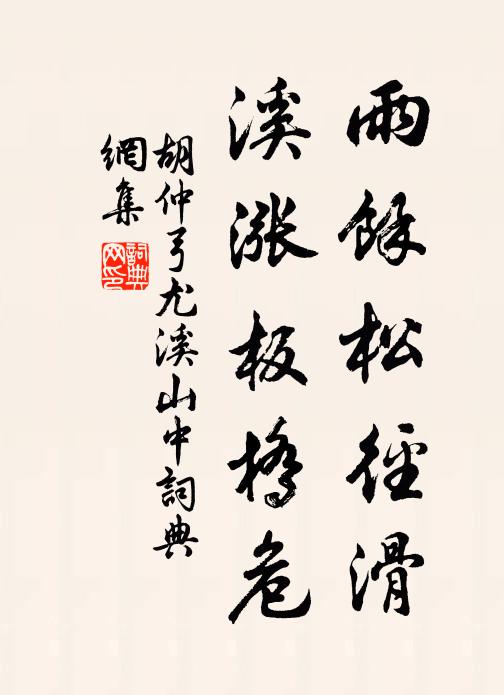 雨餘松徑滑
溪漲板橋危
胡仲弓尤溪山中詞典
網集
詞典
网印